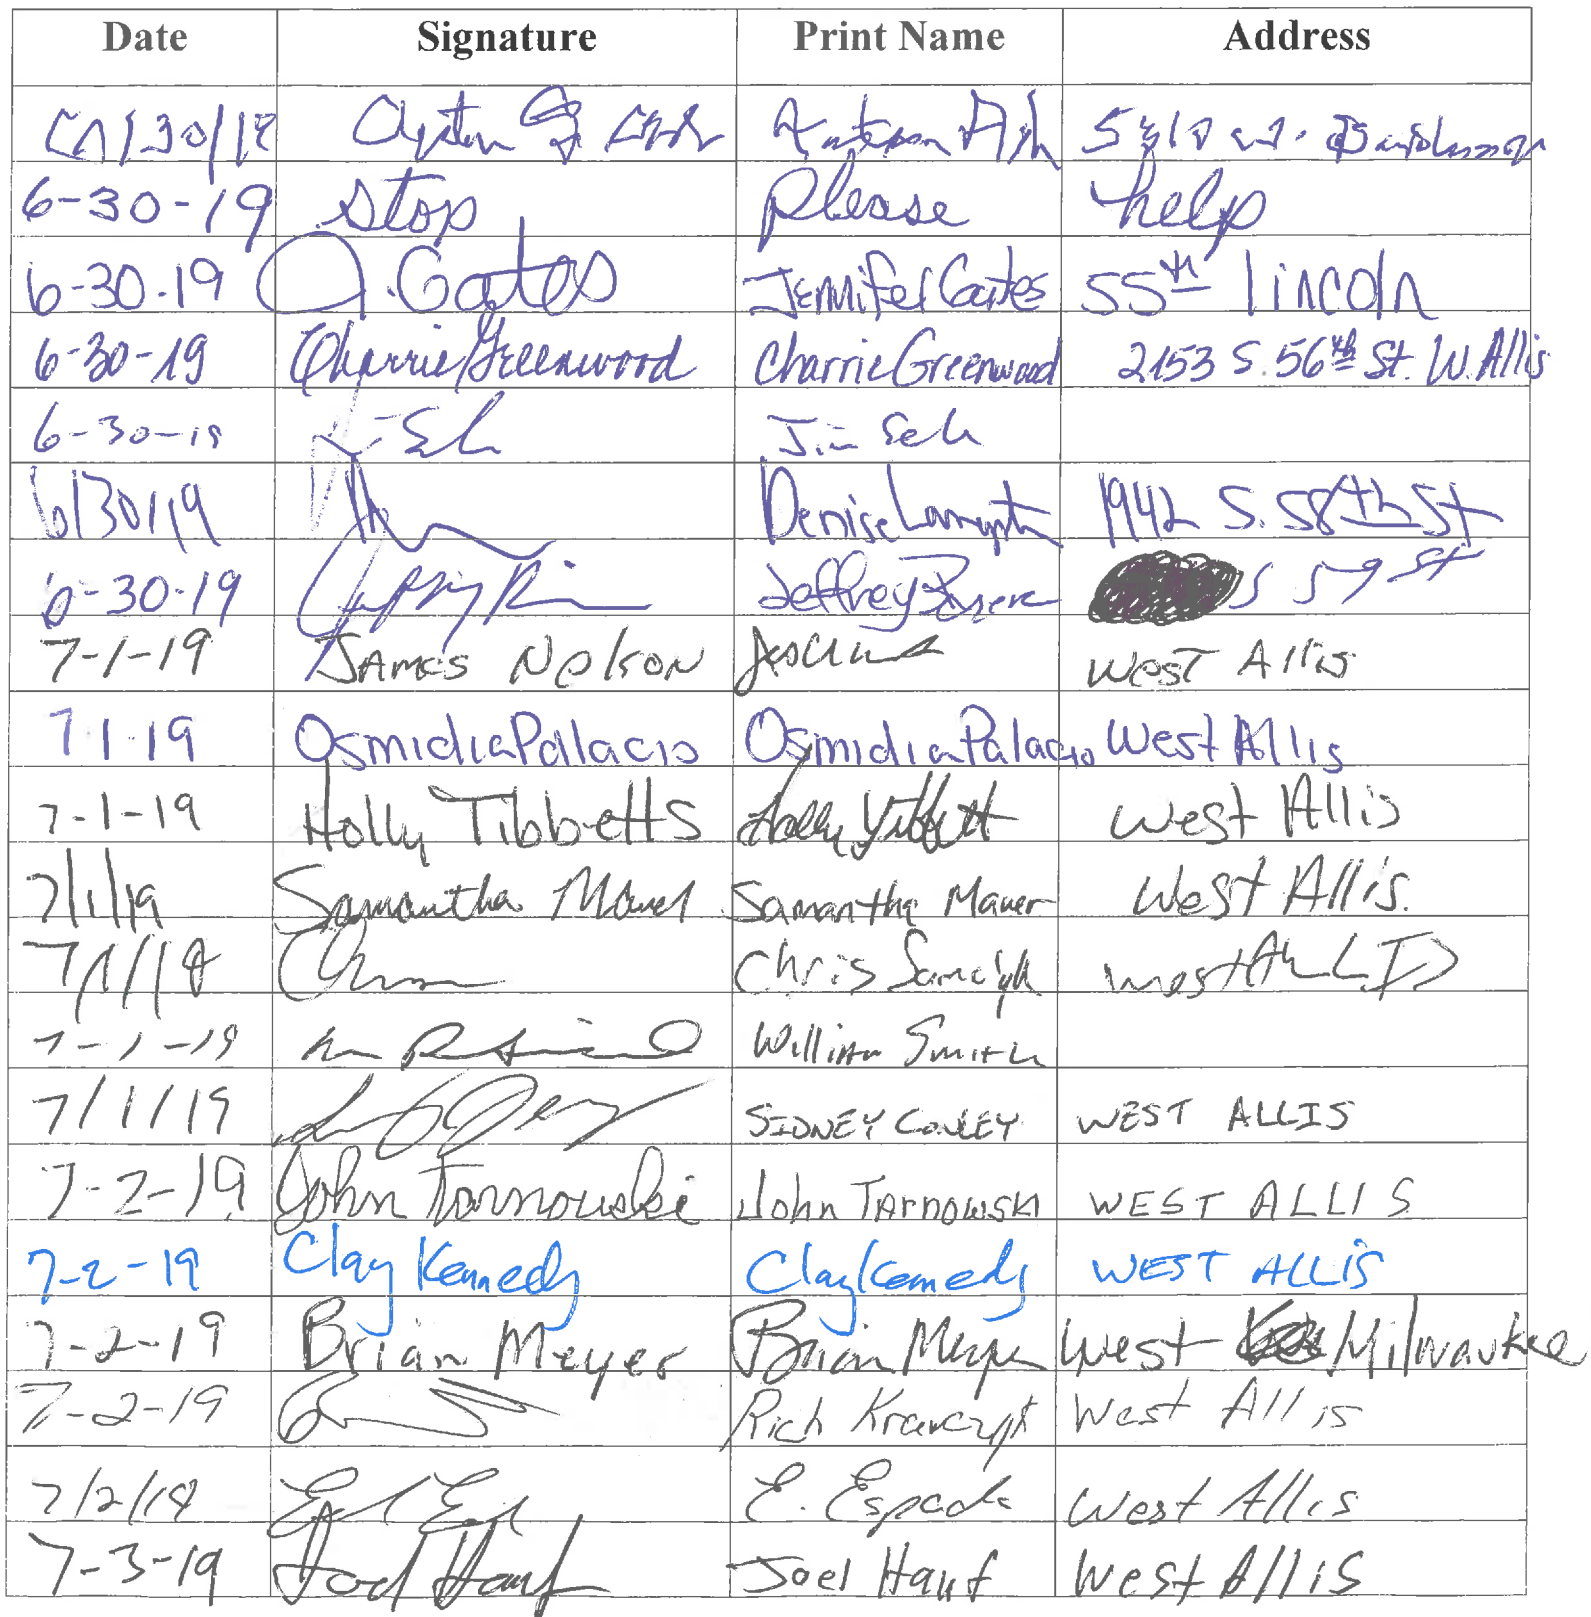 Date Signature Print Name Address
6/30/19 Ash
6-30-19 Stop Please help
6-30-19 J. Gates Jennifer Gates 55th Lincoln
6-30-19 Charrie Greenwood Charrie Greenwood 2153 S. 56th St. W. Allis
6-30-19 Jim
6/30/19 Denise 1942 S. 58th St
6-30-19 Jeffrey S 59 St
7-1-19 James Nelson West Allis
7-1-19 Osmidia Palacio Osmidia Palacio West Allis
7-1-19 Holly Tibbetts Holly Tibbetts West Allis
7/1/19 Samantha Mauer Samantha Mauer West Allis.
7/1/19 Chris West
7-1-19 William Smith
7/1/19 SIDNEY CONLEY WEST ALLIS
7-2-19 John Tarnowski John TArnowski WEST ALLIS
7-2-19 Clay Kennedy Clay Kennedy WEST ALLIS
7-2-19 Brian Meyer Brian Meyer West Milwaukee
7-2-19 Rich Krawczyk West Allis
7/2/19 E. Espada West Allis
7-3-19 Joel Hauf Joel Hauf West Allis